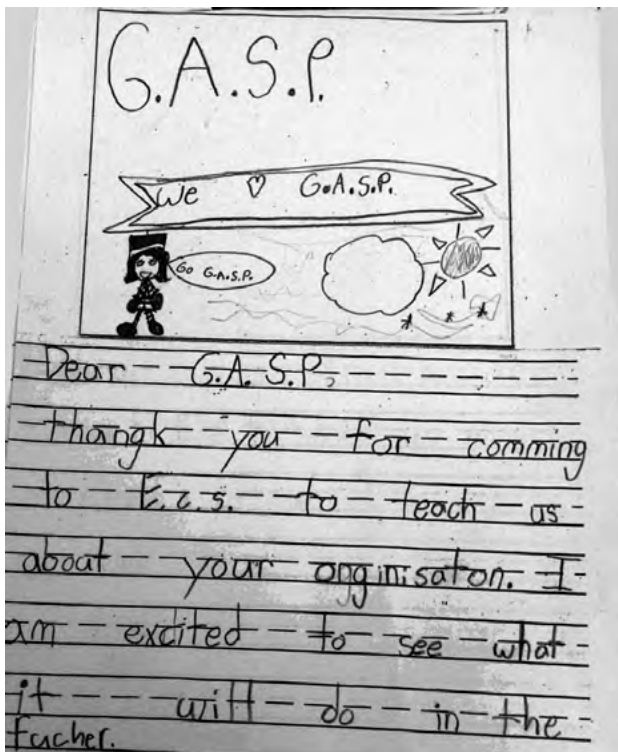 G.A.S.P.
We ♡ G.A.S.P.
Go G.A.S.P.
Dear G.A.S.P.,
thangk you for comming
to E.c.s. to teach us
about your ogginisaton. I
am excited to see what
it will do in the
fucher.